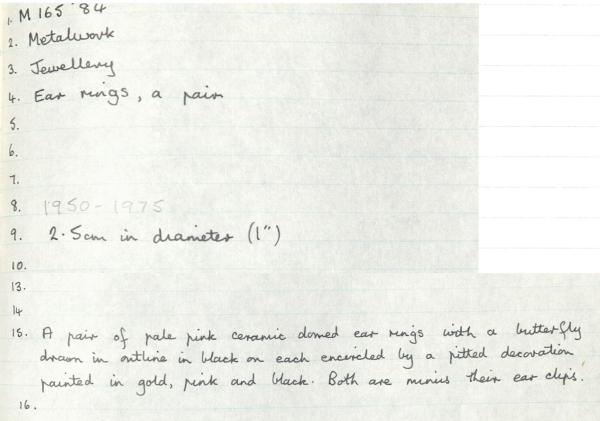 1. M 165 '84
2. Metalwork
3. Jewellery
4. Ear rings, a pair
5.
6.
7.
8. 1950-1975
9. 2.5cm in diameter (1")
10.
13.
14
15. A pair of pale pink ceramic domed ear rings with a butterfly
drawn in outline in black on each encircled by a pitted decoration
painted in gold, pink and black. Both are minus their ear clips.
16.